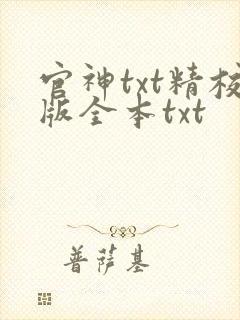 官神txt精校
版全本txt
普萨基